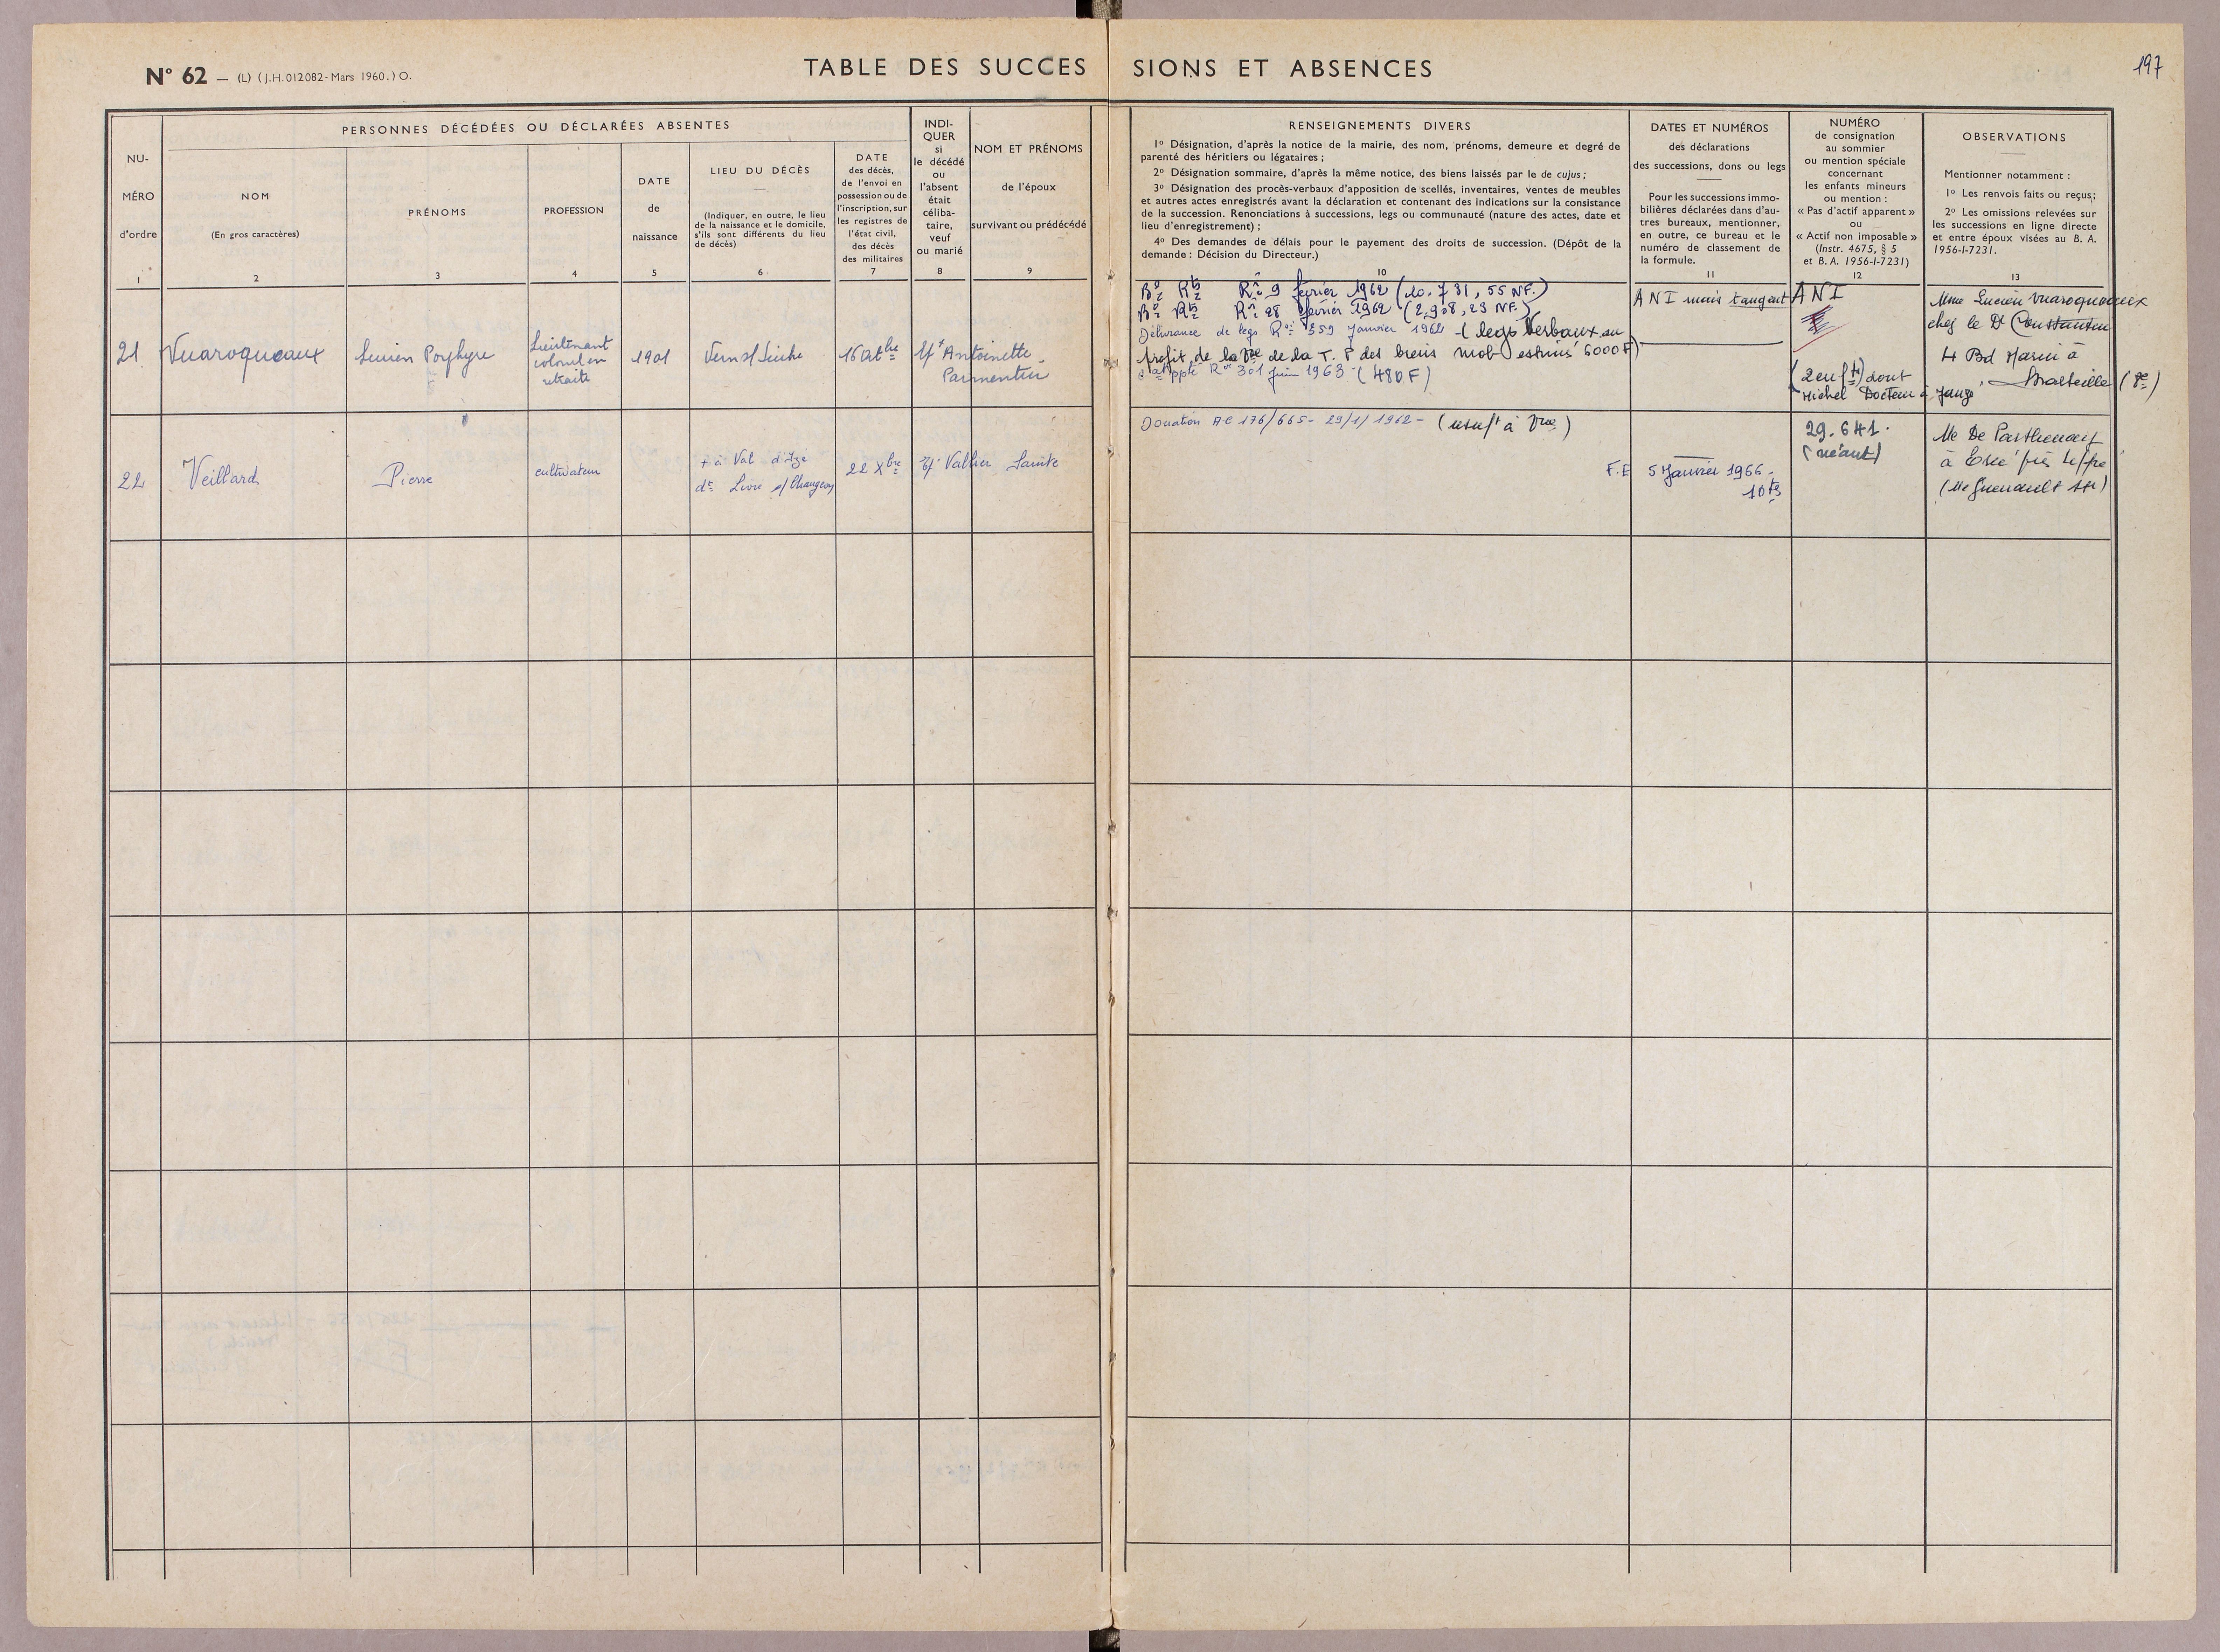 N° 62 — (L) (J.H. 012082 - Mars 1960.) O.
TABLE DES SUCCESSIONS ET ABSENCES
197
NU-
MÉRO
d'ordre
1
PERSONNES DÉCÉDÉES OU DÉCLARÉES ABSENTES
NOM
(En gros caractères)
2
PRÉNOMS
3
PROFESSION
4
DATE
de
naissance
5
LIEU DU DÉCÈS
(Indiquer, en outre, le lieu
de la naissance et le domicile,
s'ils sont différents du lieu
de décès)
6
DATE
des décès,
de l'envoi en
possession ou de
l'inscription, sur
les registres de
l'état civil,
des décès
des militaires
7
INDI-
QUER
si
le décédé
ou
l'absent
était
céliba-
taire,
veuf
ou marié
8
NOM ET PRÉNOMS
de l'époux
survivant ou prédécédé
9
RENSEIGNEMENTS DIVERS
1° Désignation, d'après la notice de la mairie, des nom, prénoms, demeure et degré de
parenté des héritiers ou légataires ;
2° Désignation sommaire, d'après la même notice, des biens laissés par le de cujus ;
3° Désignation des procès-verbaux d'apposition de scellés, inventaires, ventes de meubles
et autres actes enregistrés avant la déclaration et contenant des indications sur la consistance
de la succession. Renonciations à successions, legs ou communauté (nature des actes, date et
lieu d'enregistrement) ;
4° Des demandes de délais pour le payement des droits de succession. (Dépôt de la
demande : Décision du Directeur.)
10
DATES ET NUMÉROS
des déclarations
des successions, dons ou legs
Pour les successions immo-
bilières déclarées dans d'au-
tres bureaux, mentionner,
en outre, ce bureau et le
numéro de classement de
la formule.
11
NUMÉRO
de consignation
au sommier
ou mention spéciale
concernant
les enfants mineurs
ou mention :
« Pas d'actif apparent »
ou
« Actif non imposable »
(Instr. 4675, § 5
et B. A. 1956-I-7231)
12
OBSERVATIONS
Mentionner notamment :
1° Les renvois faits ou reçus;
2° Les omissions relevées sur
les successions en ligne directe
et entre époux visées au B. A.
1956-I-7231.
13
21
Vuaroqueaux
Lucien Porphyre
Lieutenant
colonel en
retraite
1901
Vern s/ Seiche
16 8bre
Antoinette
Parmentier
9 février 1962 (10.781,55 NF.)
28 février 1962 (2.908,23 NF.)
Délivrance de legs 359 Janvier 1962 (legs Verbaux au
profit de la Vve de la T. P des biens mob estimés 6000 F)
ppté 301 Juin 1963 (480 F)
ANI mais tangent
ANI
(2 enfts) dont
Michel Docteur à
Mme Lucien Vuaroqueaux
chez le Dr Constantin
4 Bd Marin à
Marseille (8e)
22
Veillard
Pierre
cultivateur
+ à Val d'Izé
dt Livré s/ Changeon
22 Xbre
Vallier Sainte
Donation AC 176/665 - 29/1/1962 - (usuft à Vve)
F.E
5 Janvier 1966.
10 ts
29.641.
(néant)
Me De Parthenay
à Essé près
(Me Guenault)